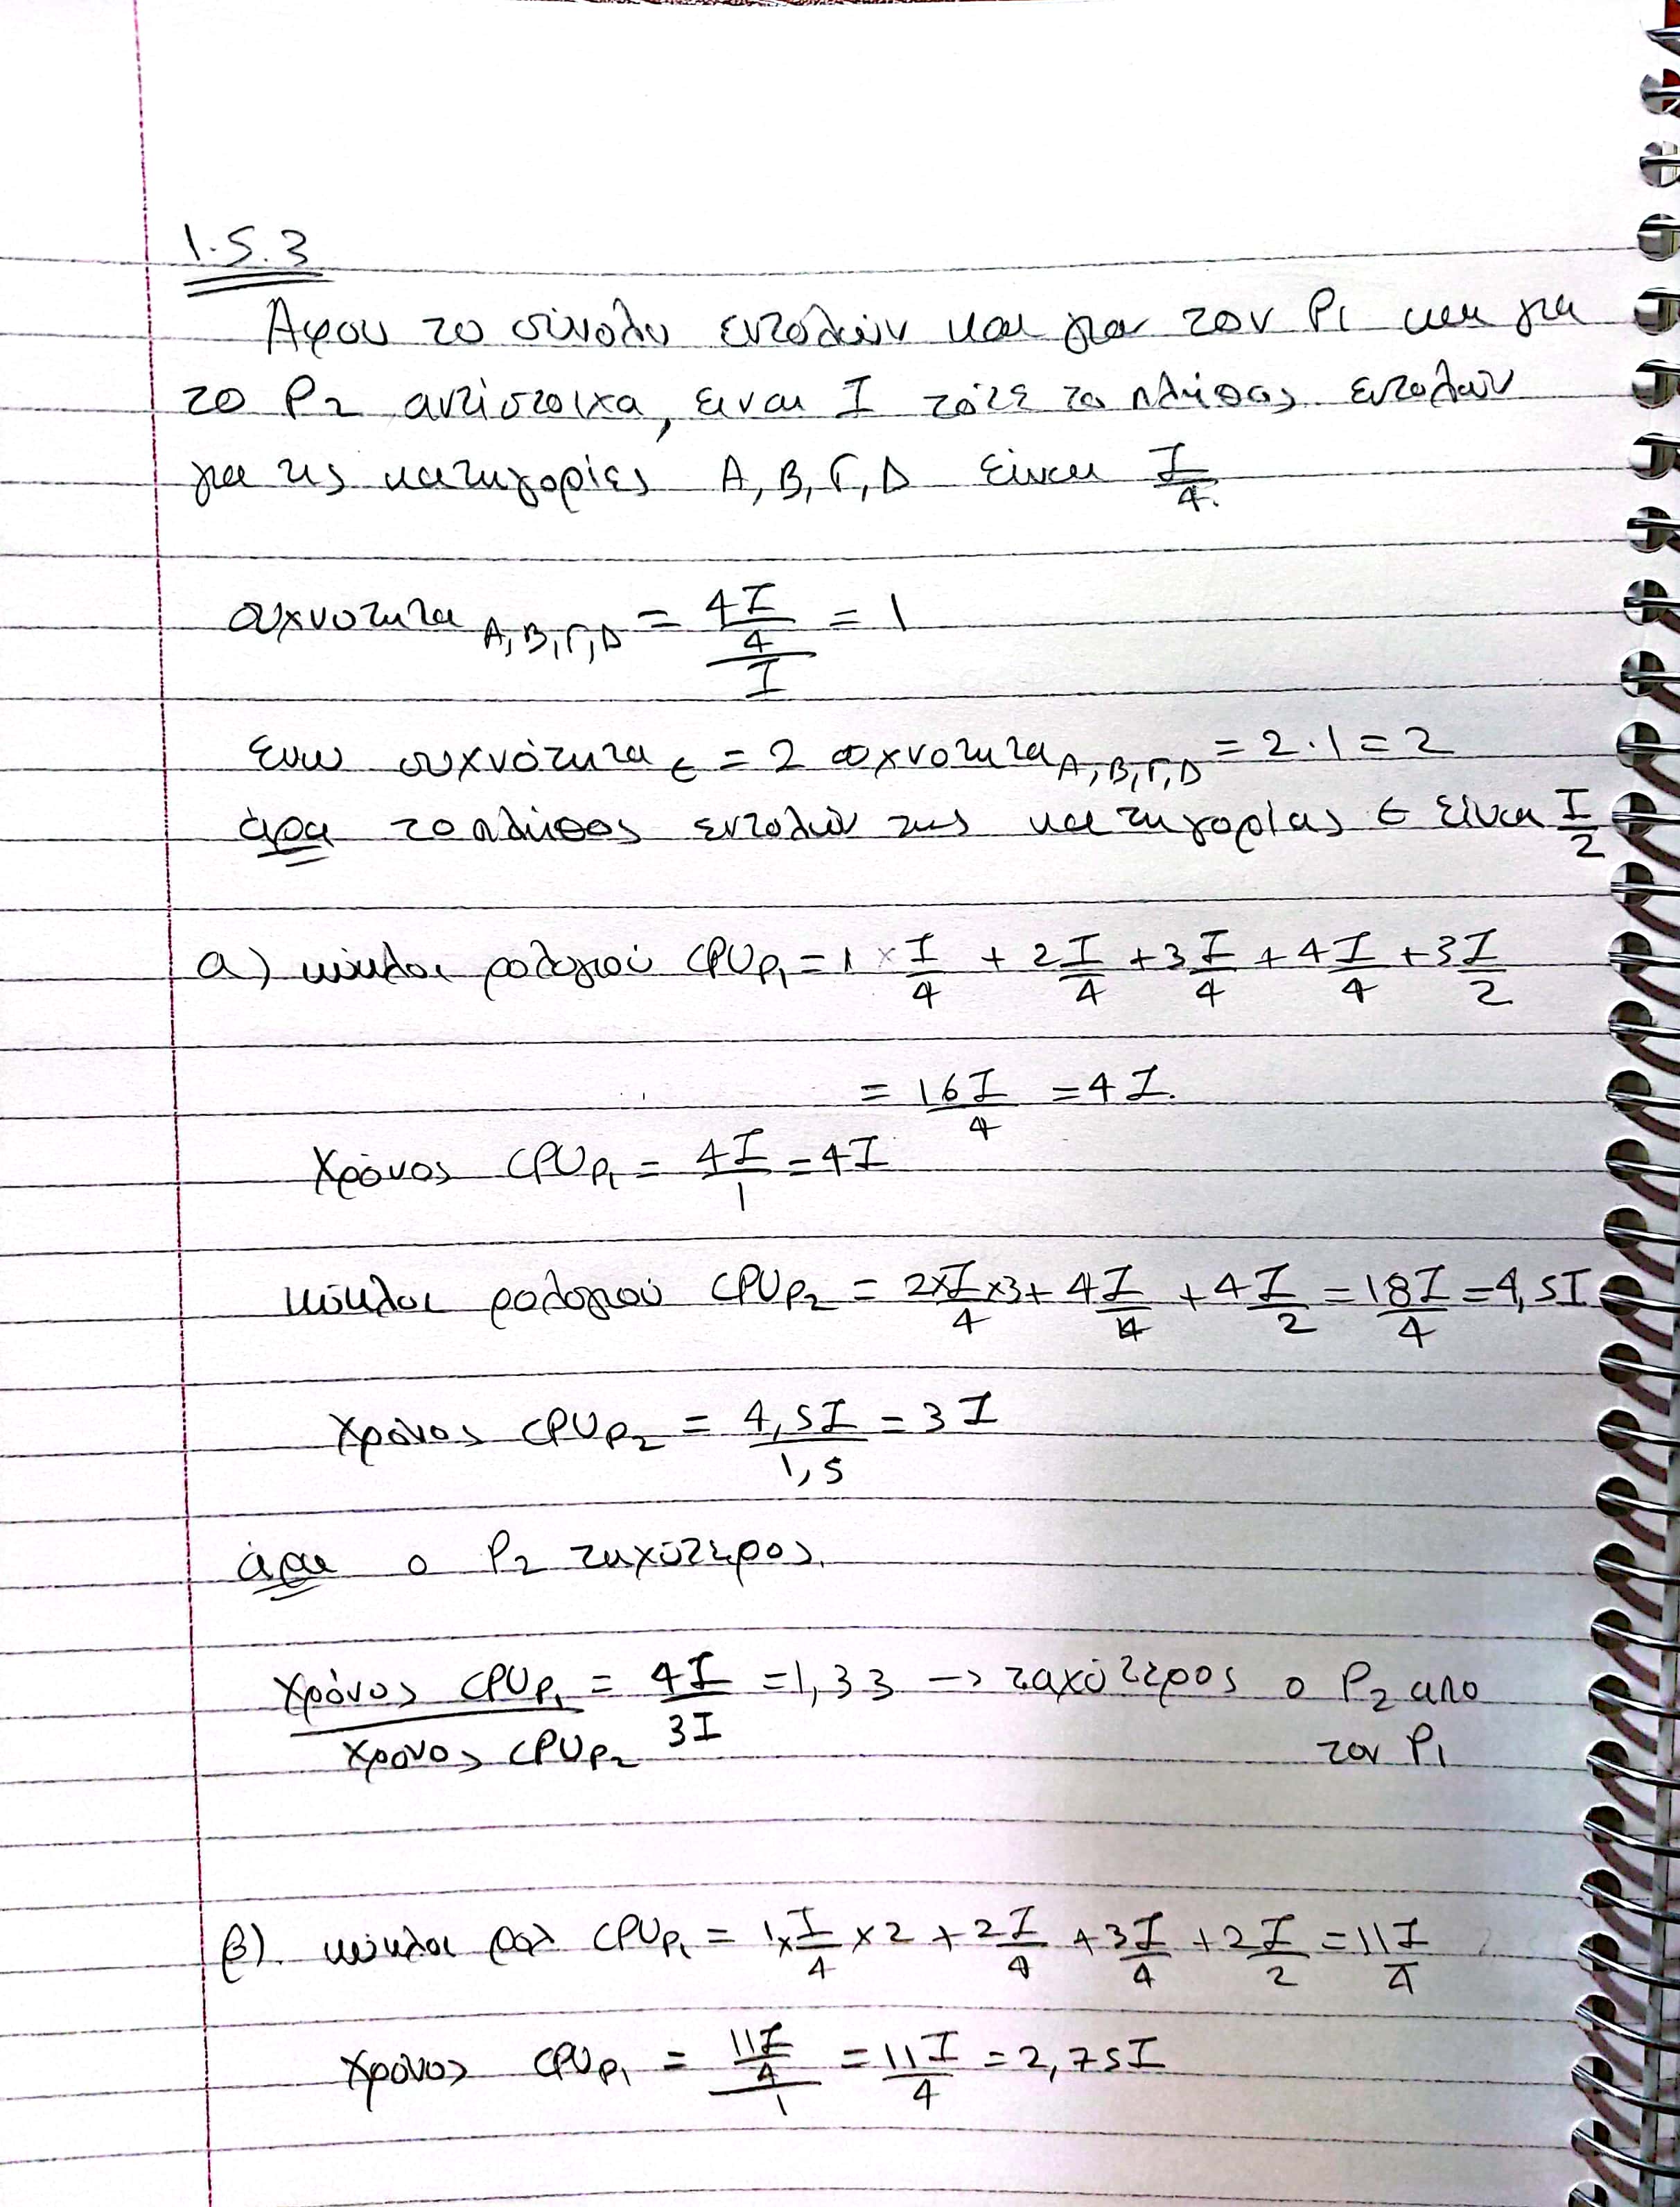 1.5.3
Αφου το σύνολο εντολών και για τον P1 και για
το P2 αντίστοιχα, ειναι I τότε το πλήθος εντολών
για τις κατηγορίες A, B, Γ, D είναι I/4.
συχνοτητα A,B,Γ,D = (4I/4)/I = 1
ενω συχνότητα ε = 2 συχνοτητα A,B,Γ,D = 2·1 = 2
άρα το πλήθος εντολών της κατηγορίας ε είναι I/2
α) κύκλοι ρολογιού CPUP1 = 1 × I/4 + 2I/4 + 3I/4 + 4I/4 + 3I/2
= 16I/4 = 4I.
Χρόνος CPUP1 = 4I/1 = 4I
κύκλοι ρολογιού CPUP2 = 2×I/4 ×3 + 4I/4 + 4I/2 = 18I/4 = 4,5I
Χρόνος CPUP2 = 4,5I/1,5 = 3I
άρα ο P2 ταχύτερος.
Χρόνος CPUP1 / Χρόνος CPUP2 = 4I/3I = 1,33 -> ταχύτερος ο P2 απο
τον P1
β). κύκλοι ρολ CPUP1 = 1×I/4 ×2 + 2I/4 + 3I/4 + 2I/2 = 11I/4
Χρόνος CPUP1 = (11I/4)/1 = 11I/4 = 2,75I